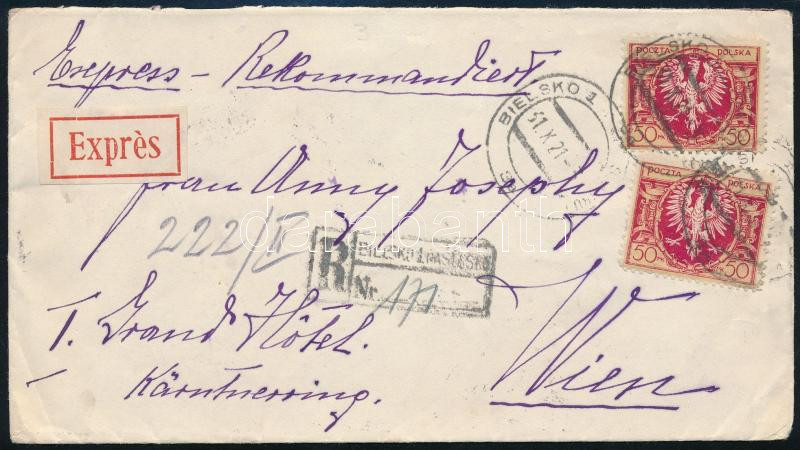 Express – Rekommandiert
POCZTA POLSKA
50 50
BIELSKO 1
31.X.21
Exprès
Frau Anny Josephy
POCZTA POLSKA
50 50
222/II
R
BIELSKO 1
Nr. 171
I. Grand Hôtel.
Wien
Kärntnerring.
darabanth